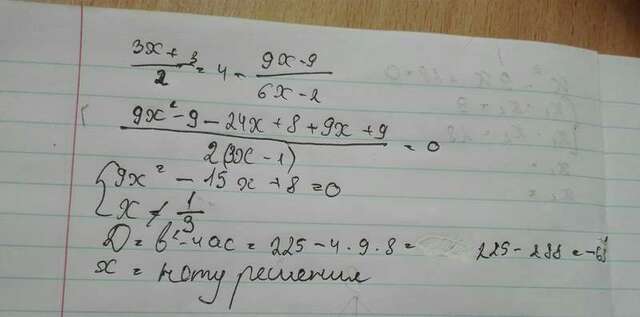 (3x + 3)/2 = 4 - (9x - 9)/(6x - 2)
(9x² - 9 - 24x + 8 + 9x + 9)/(2(3x - 1)) = 0
{ 9x² - 15x + 8 = 0
x ≠ 1/3
D = b² - 4ac = 225 - 4 · 9 · 8 = 225 - 288 = -63
x = нету решения